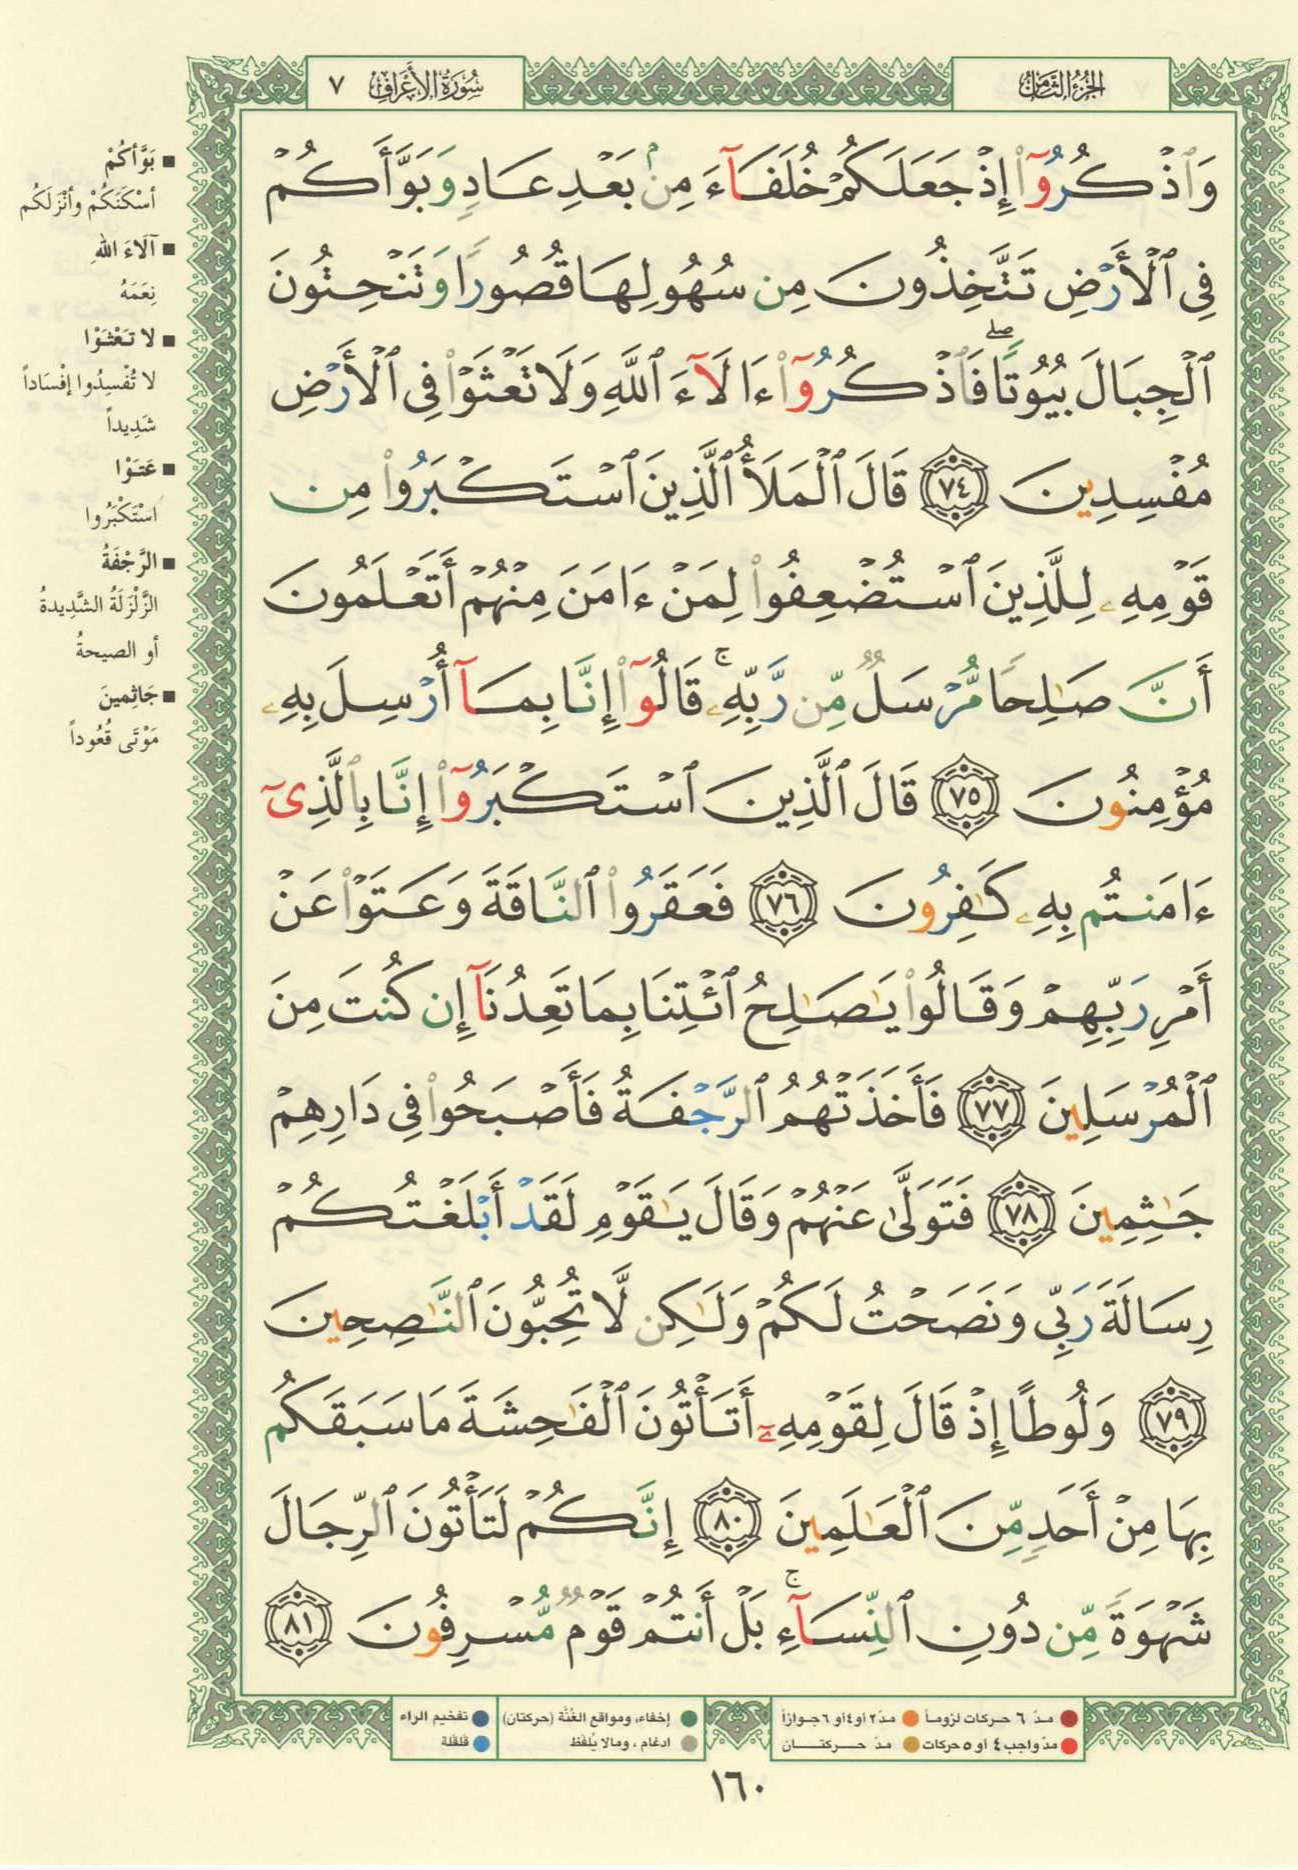 الجزء الثامن
سورة الأعراف ٧
وَٱذۡكُرُوٓاْ إِذۡ جَعَلَكُمۡ خُلَفَآءَ مِنۢ بَعۡدِ عَادٖ وَبَوَّأَكُمۡ
فِي ٱلۡأَرۡضِ تَتَّخِذُونَ مِن سُهُولِهَا قُصُورٗا وَتَنۡحِتُونَ
ٱلۡجِبَالَ بُيُوتٗاۖ فَٱذۡكُرُوٓاْ ءَالَآءَ ٱللَّهِ وَلَا تَعۡثَوۡاْ فِي ٱلۡأَرۡضِ
مُفۡسِدِينَ ٧٤ قَالَ ٱلۡمَلَأُ ٱلَّذِينَ ٱسۡتَكۡبَرُواْ مِن
قَوۡمِهِۦ لِلَّذِينَ ٱسۡتُضۡعِفُواْ لِمَنۡ ءَامَنَ مِنۡهُمۡ أَتَعۡلَمُونَ
أَنَّ صَٰلِحٗا مُّرۡسَلٞ مِّن رَّبِّهِۦۚ قَالُوٓاْ إِنَّا بِمَآ أُرۡسِلَ بِهِۦ
مُؤۡمِنُونَ ٧٥ قَالَ ٱلَّذِينَ ٱسۡتَكۡبَرُوٓاْ إِنَّا بِٱلَّذِيٓ
ءَامَنتُم بِهِۦ كَٰفِرُونَ ٧٦ فَعَقَرُواْ ٱلنَّاقَةَ وَعَتَوۡاْ عَنۡ
أَمۡرِ رَبِّهِمۡ وَقَالُواْ يَٰصَٰلِحُ ٱئۡتِنَا بِمَا تَعِدُنَآ إِن كُنتَ مِنَ
ٱلۡمُرۡسَلِينَ ٧٧ فَأَخَذَتۡهُمُ ٱلرَّجۡفَةُ فَأَصۡبَحُواْ فِي دَارِهِمۡ
جَٰثِمِينَ ٧٨ فَتَوَلَّىٰ عَنۡهُمۡ وَقَالَ يَٰقَوۡمِ لَقَدۡ أَبۡلَغۡتُكُمۡ
رِسَالَةَ رَبِّي وَنَصَحۡتُ لَكُمۡ وَلَٰكِن لَّا تُحِبُّونَ ٱلنَّٰصِحِينَ
٧٩ وَلُوطًا إِذۡ قَالَ لِقَوۡمِهِۦٓ أَتَأۡتُونَ ٱلۡفَٰحِشَةَ مَا سَبَقَكُم
بِهَا مِنۡ أَحَدٖ مِّنَ ٱلۡعَٰلَمِينَ ٨٠ إِنَّكُمۡ لَتَأۡتُونَ ٱلرِّجَالَ
شَهۡوَةٗ مِّن دُونِ ٱلنِّسَآءِۚ بَلۡ أَنتُمۡ قَوۡمٞ مُّسۡرِفُونَ ٨١
بَوَّأكُمْ
أسْكَنَكُمْ وأنْزَلَكُم
آلَاءَ اللهِ
نِعَمَهُ
لا تَعْثَوْا
لا تُفْسِدُوا إفْسَاداً
شَدِيداً
عَتَوْا
اسْتَكْبَرُوا
الرَّجْفَةُ
الزَّلْزَلَةُ الشَّدِيدةُ
أو الصيحةُ
جَاثِمِينَ
مَوْتَى قُعُوداً
مدّ ٦ حركات لزوماً مدّ ٢ أو ٤ أو ٦ جوازاً
مدّ واجب ٤ أو ٥ حركات مدّ حركتان
إخفاء، ومواقع الغُنَّة (حركتان) تفخيم الراء
ادغام، ومالا يُلفَظ قلقلة
١٦٠